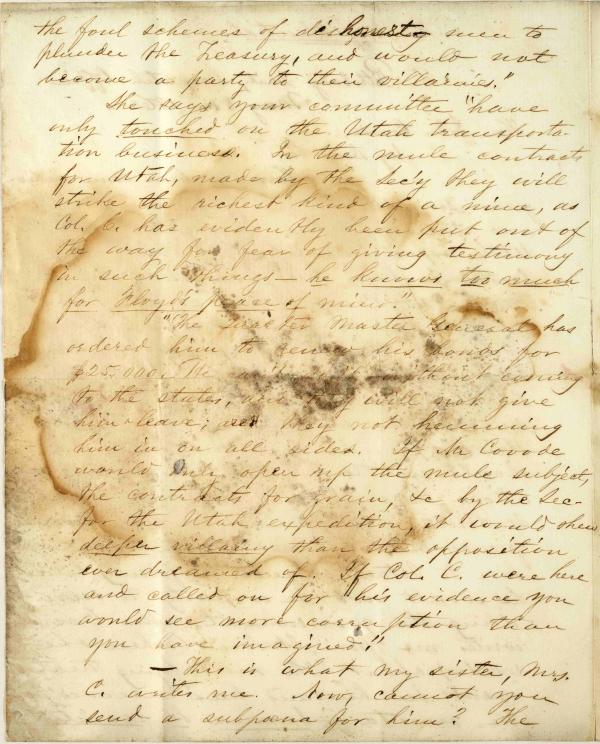 the foul schemes of dishonest men to
plunder the Treasury, and would not
become a party to their villainies."
She says your committee "have
only touched on the Utah transporta-
tion business. In the mule contracts
for Utah, made by the Sec'y they will
strike the richest kind of a mine, as
Col. C. has evidently been put out of
the way for fear of giving testimony
in such things — he knows too much
for Floyd's peace of mind."
"The Quarter Master General has
ordered him to renew his bonds for
$25.000. He without coming
to the states, and will not give
him leave; are they not hemming
him in on all sides. If Mr Covode
would only open up the mule subject,
the contracts for grain, &c by the Sec-
for the Utah expedition, it would shew
deeper villainy than the opposition
ever dreamed of. If Col. C. were here
and called on for his evidence you
would see more corruption than
you have imagined."
— This is what my sister, Mrs.
C. writes me. Now, cannot you
send a subpœna for him? The